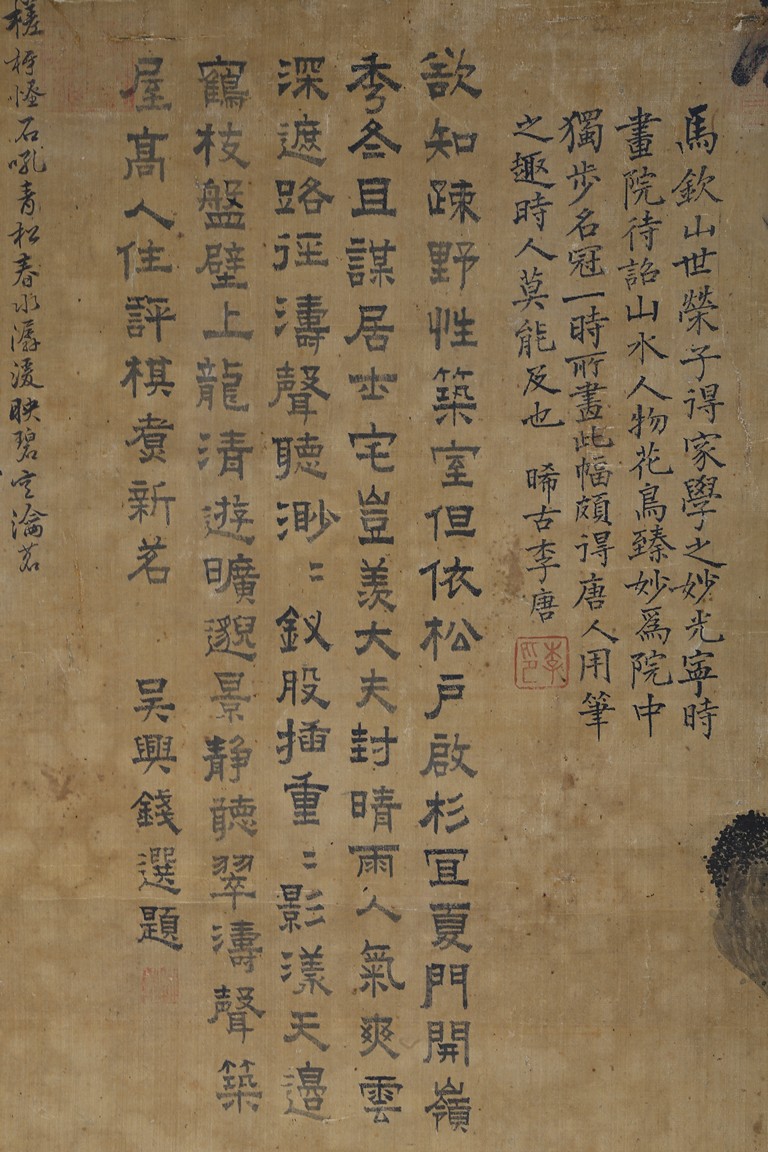 馬欽山世榮子得家學之妙光寧時
畫院待詔山水人物花鳥臻妙爲院中
獨步名冠一時所畫此幅頗得唐人用筆
之趣時人莫能及也 晞古李唐
欲知疎野性築室但依松戶啟杉冝夏門開嶺
秀冬且謀居士宅豈羨大夫封晴雨人氣爽雲
深遮路徑濤聲聽渺〻釵股插重〻影漾天邊
鶴枝盤壁上龍清遊曠邈景静聽翠濤聲築
屋高人住評棋煑新茗
吴興錢選題
槎枒怪石吼青松春水潺湲映碧